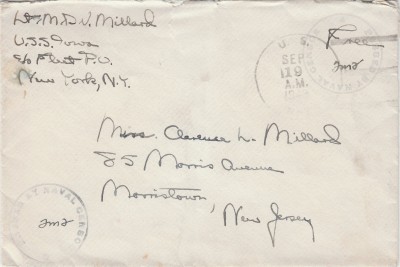 Lt. M.D.V. Millard
U.S.S. Iowa
c/o Fleet P.O.
New York, N.Y.
U. S.
SEP
19
A.M.
Free
Miss. Clarence L. Millard
85 Morris Avenue
Morristown,
New Jersey
NAVAL CENSOR